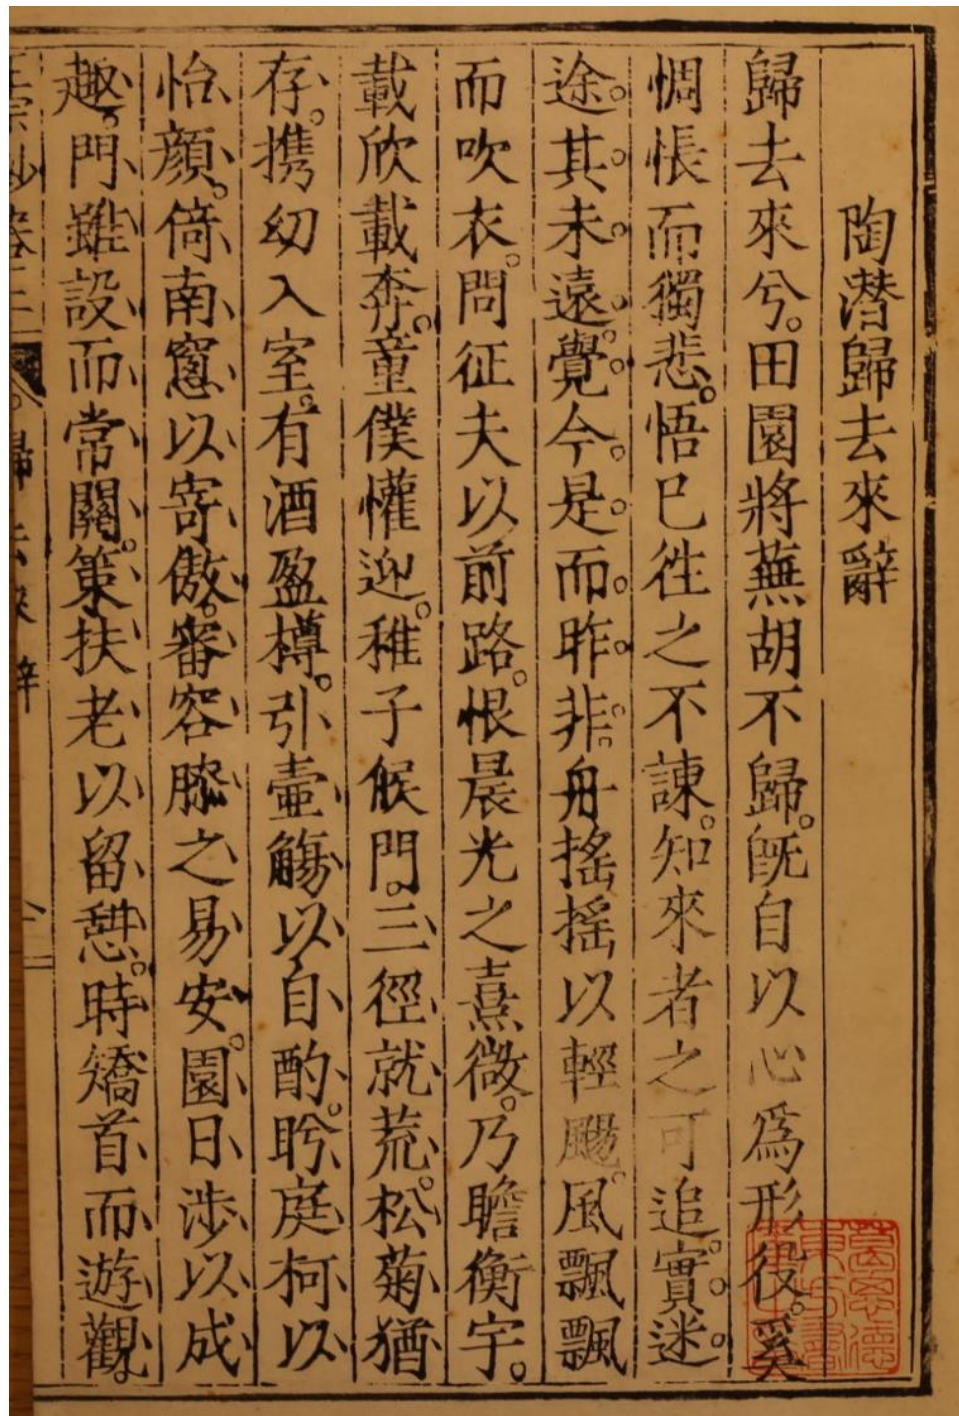 陶潛歸去來辭
歸去來兮。田園將蕪胡不歸。旣自以心爲形役。奚
惆悵而獨悲。悟已往之不諫。知來者之可追。實迷
途。其未遠。覺今是而昨非。舟搖搖以輕颺。風飄飄
而吹衣。問征夫以前路。恨晨光之熹微。乃瞻衡宇。
載欣載奔。童僕懽迎。稚子候門。三徑就荒。松菊猶
存。携幼入室。有酒盈樽。引壷觴以自酌。眄庭柯以
怡顔。倚南窓以寄傲。審容膝之易安。園日涉以成
趣。門雖設而常關。策扶老以留憩。時矯首而遊觀。
歸去來辭